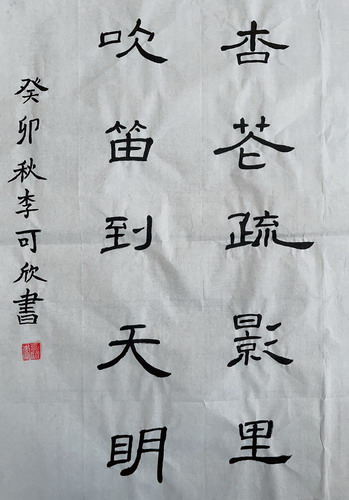 杏花疏影里
吹笛到天明
癸卯秋李可欣書